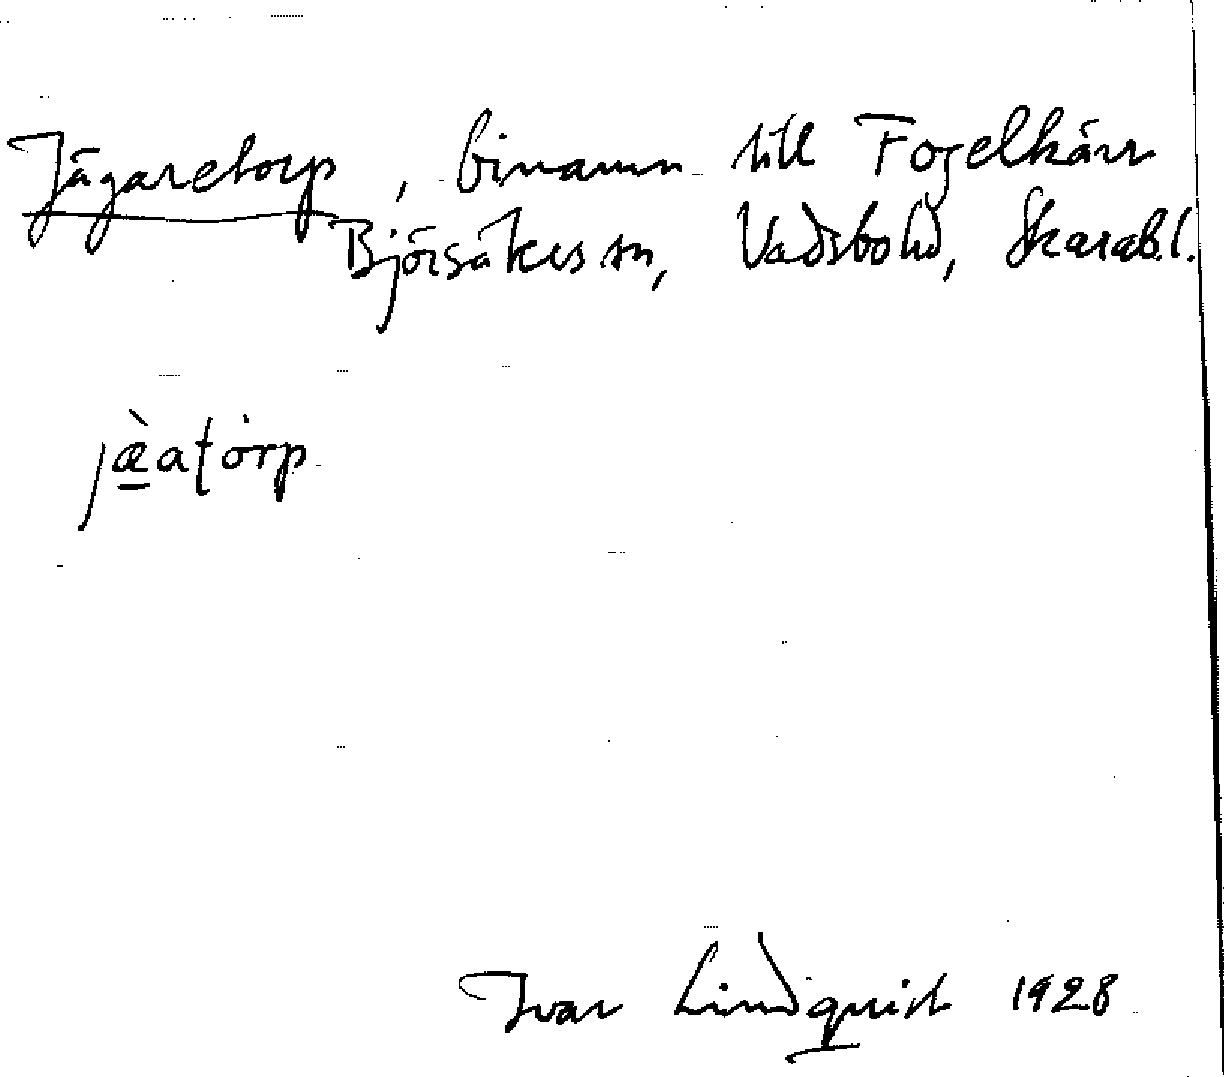 Jägaretorp, binamn till Fogelkärr
Björsäters sn, Vadsbo hd, Skarab.l.
jæ̀atȯrp
Ivar Lindquist 1928